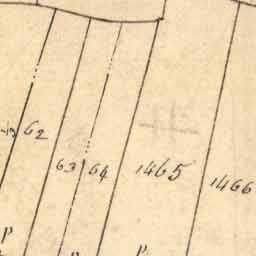 62
63 64
1465
1466
p
p
p